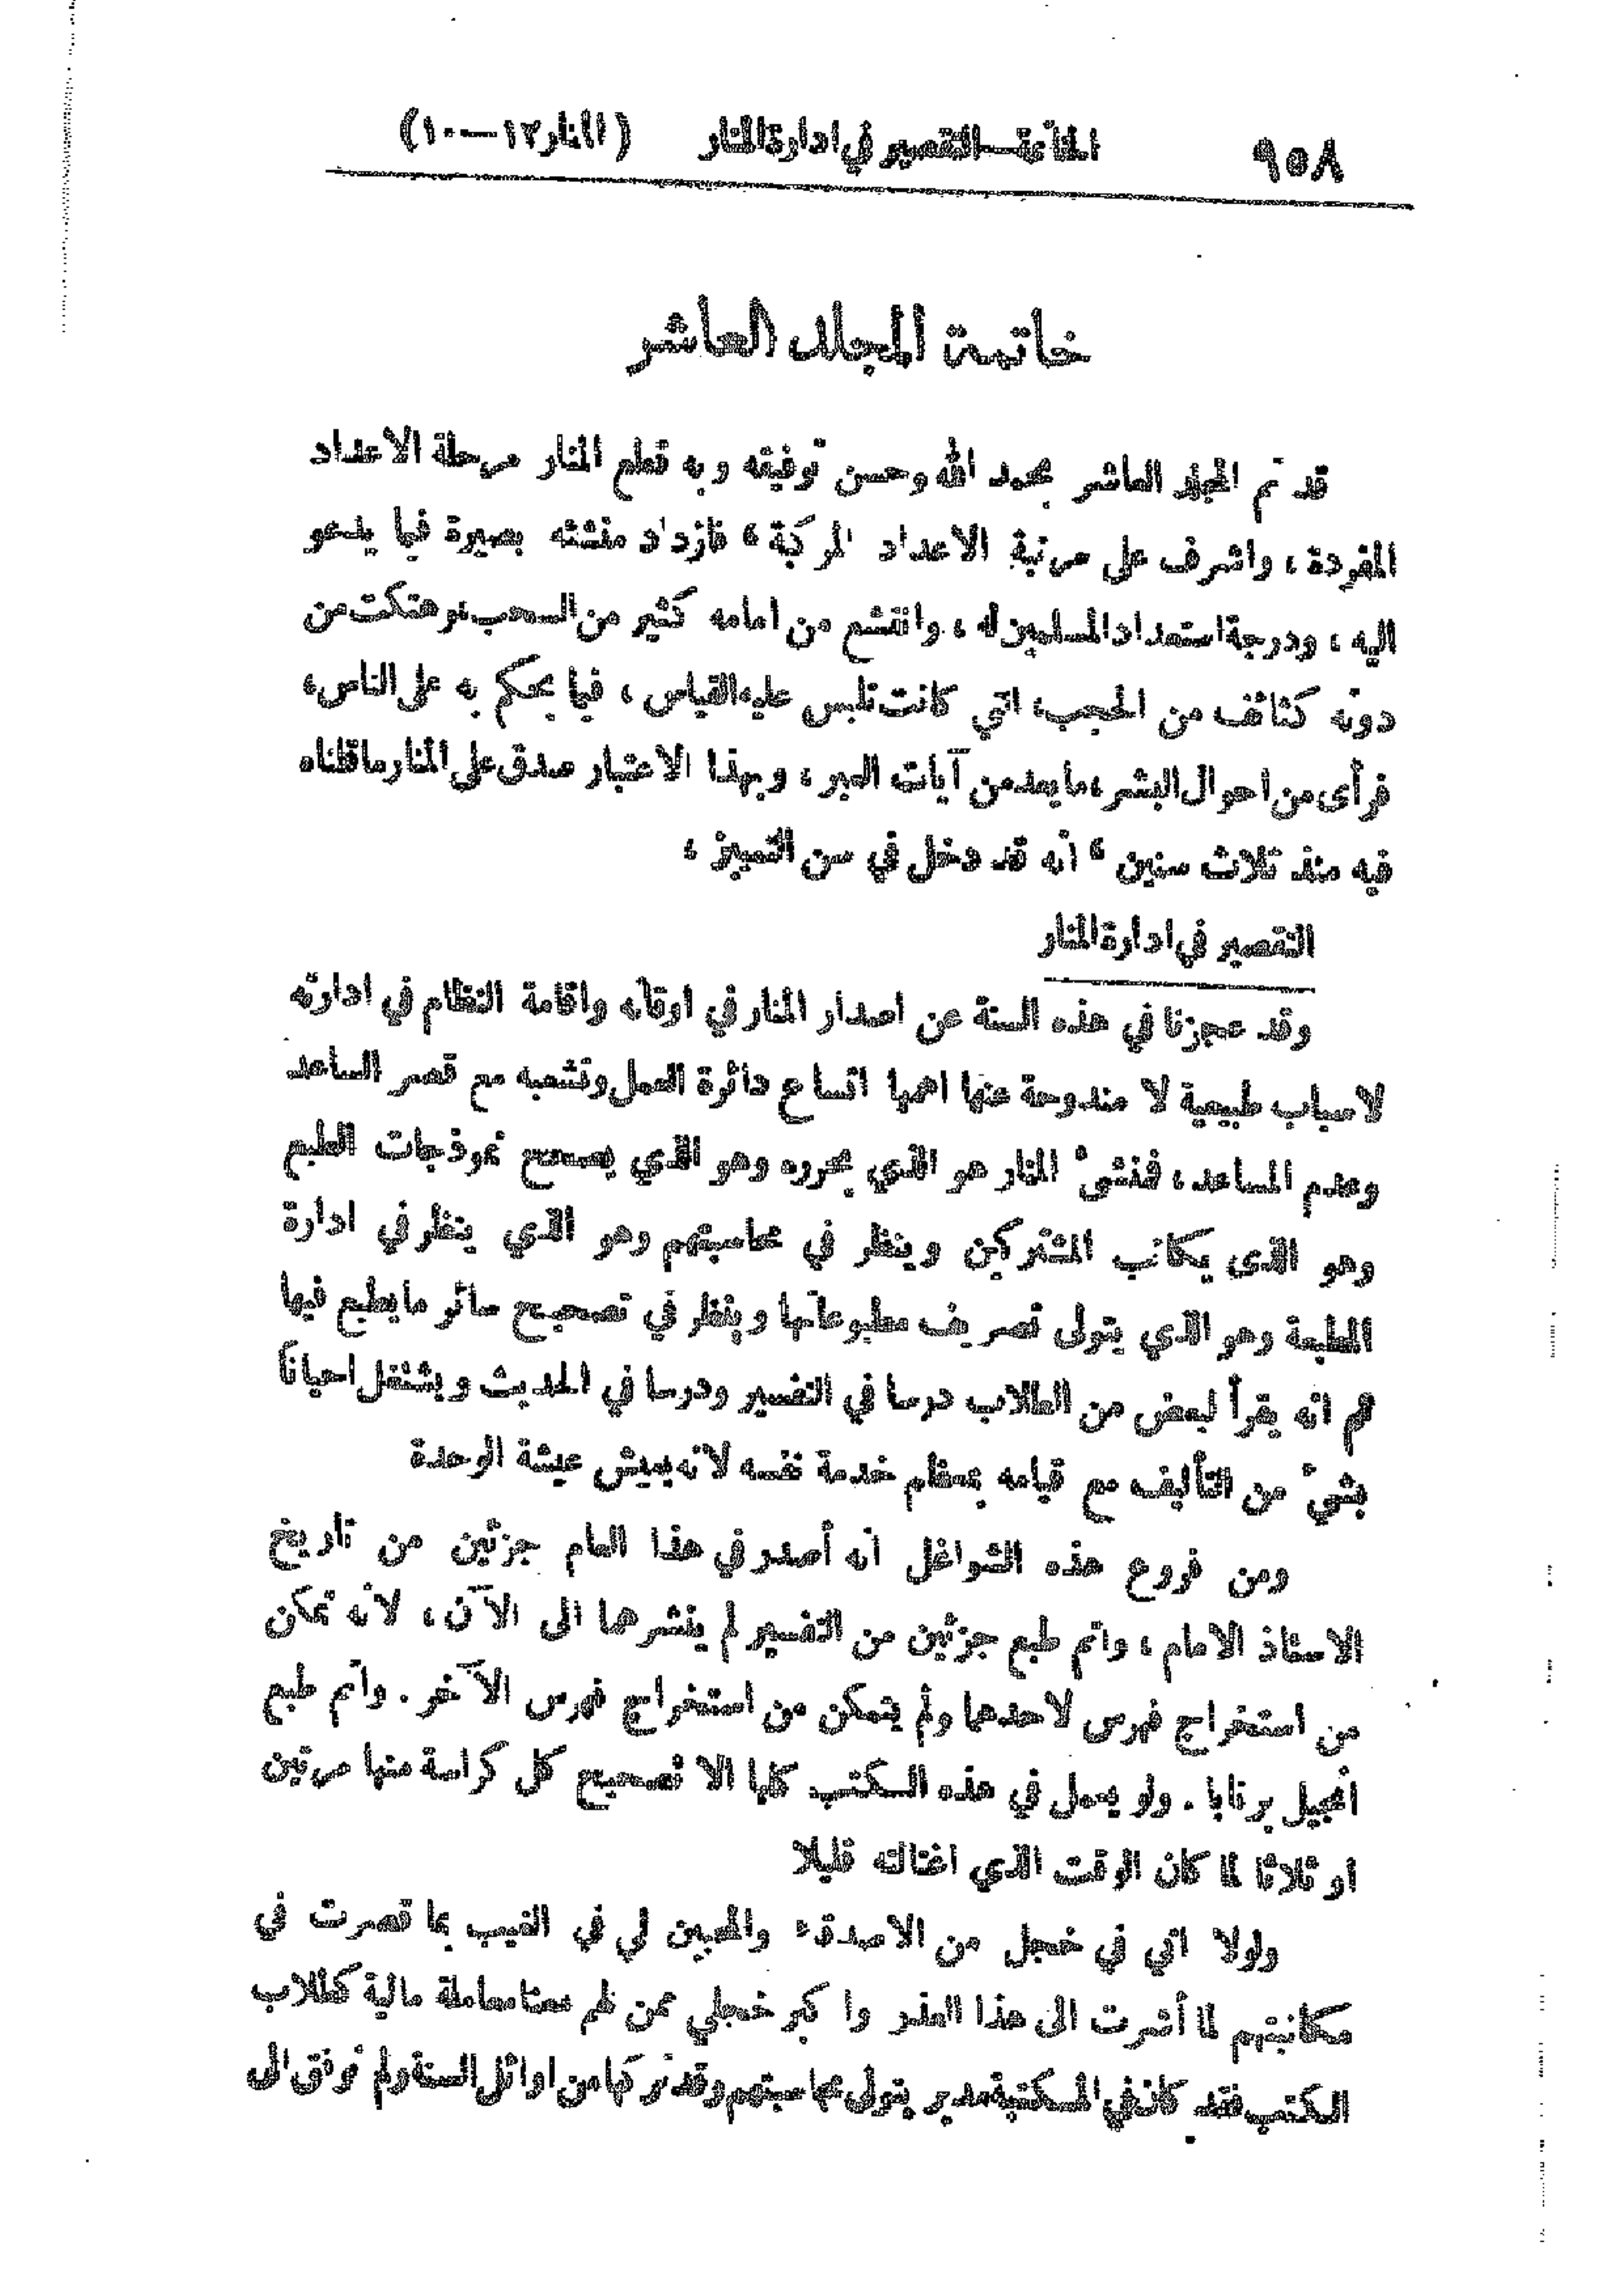 ٩٥٨ الخاتمة—التقصير في ادارة المنار (المنار ١٢—١٠)
خاتمة المجلد العاشر
قد تم المجلد العاشر بحمد الله وحسن توفيقه وبه قطع المنار مرحلة الاعداد
المفردة، واشرف على مرتبة الاعداد المركبة، فازداد منشئه بصيرة فيما يدعو
اليه، ودرجة استعداد المسلمين له، وانقشع من امامه كثير من السحب، وهتكت من
دونه كثائف من الحجب، التي كانت تلبس عليه القياس، فيما يحكم به على الناس،
فرأى من احوال البشر، ما يعد من آيات العبر، وبهذا الاعتبار صدق على المنار ما قلناه
فيه منذ ثلاث سنين، أنه قد دخل في سن التمييز،
التقصير في ادارة المنار
وقد عجزنا في هذه السنة عن اصدار المنار في اوقاته واقامة النظام في ادارته
لاسباب طبيعية لا مندوحة عنها اهمها اتساع دائرة العمل وتشعبه مع قصر الساعد
وعدم المساعد، فمنشئ المنار هو الذي يحرره وهو الذي يصحح نموذجات الطبع
وهو الذى يكاتب المشتركين وينظر في محاسبتهم وهو الذي ينظر في ادارة
المطبعة وهو الذي يتولى تصريف مطبوعاتها وينظر في تصحيح سائر ما يطبع فيها
ثم انه يقرأ لبعض من الطلاب درسا في التفسير ودرسا في الحديث ويشتغل احياناً
بشيء من التأليف مع قيامه بمعظم خدمة نفسه لانه يعيش عيشة الوحدة
ومن فروع هذه الشواغل انه أصدر في هذا العام جزئين من تاريخ
الاستاذ الامام، واتم طبع جزئين من التفسير لم ينشرهما الى الآن، لانه تمكن
من استخراج فهرس لاحدهما ولم يتمكن من استخراج فهرس الآخر. وأتم طبع
أنجيل برنابا. ولو لم يعمل في هذه الكتب كلها الا تصحيح كل كراسة منها مرتين
او ثلاثا لما كان الوقت الذي اغتاله قليلا
ولولا اني في خجل من الاصدقاء والمحبين لي في الغيب بما قصرت في
مكاتبتهم لما أشرت الى هذا العذر واكبر خجلي ممن لهم معنا معاملة مالية كطلاب
الكتب فقد كان في المكتبة مدير يتولى محاسبتهم وقد تركها من اوائل السنة ولم نوفق الى